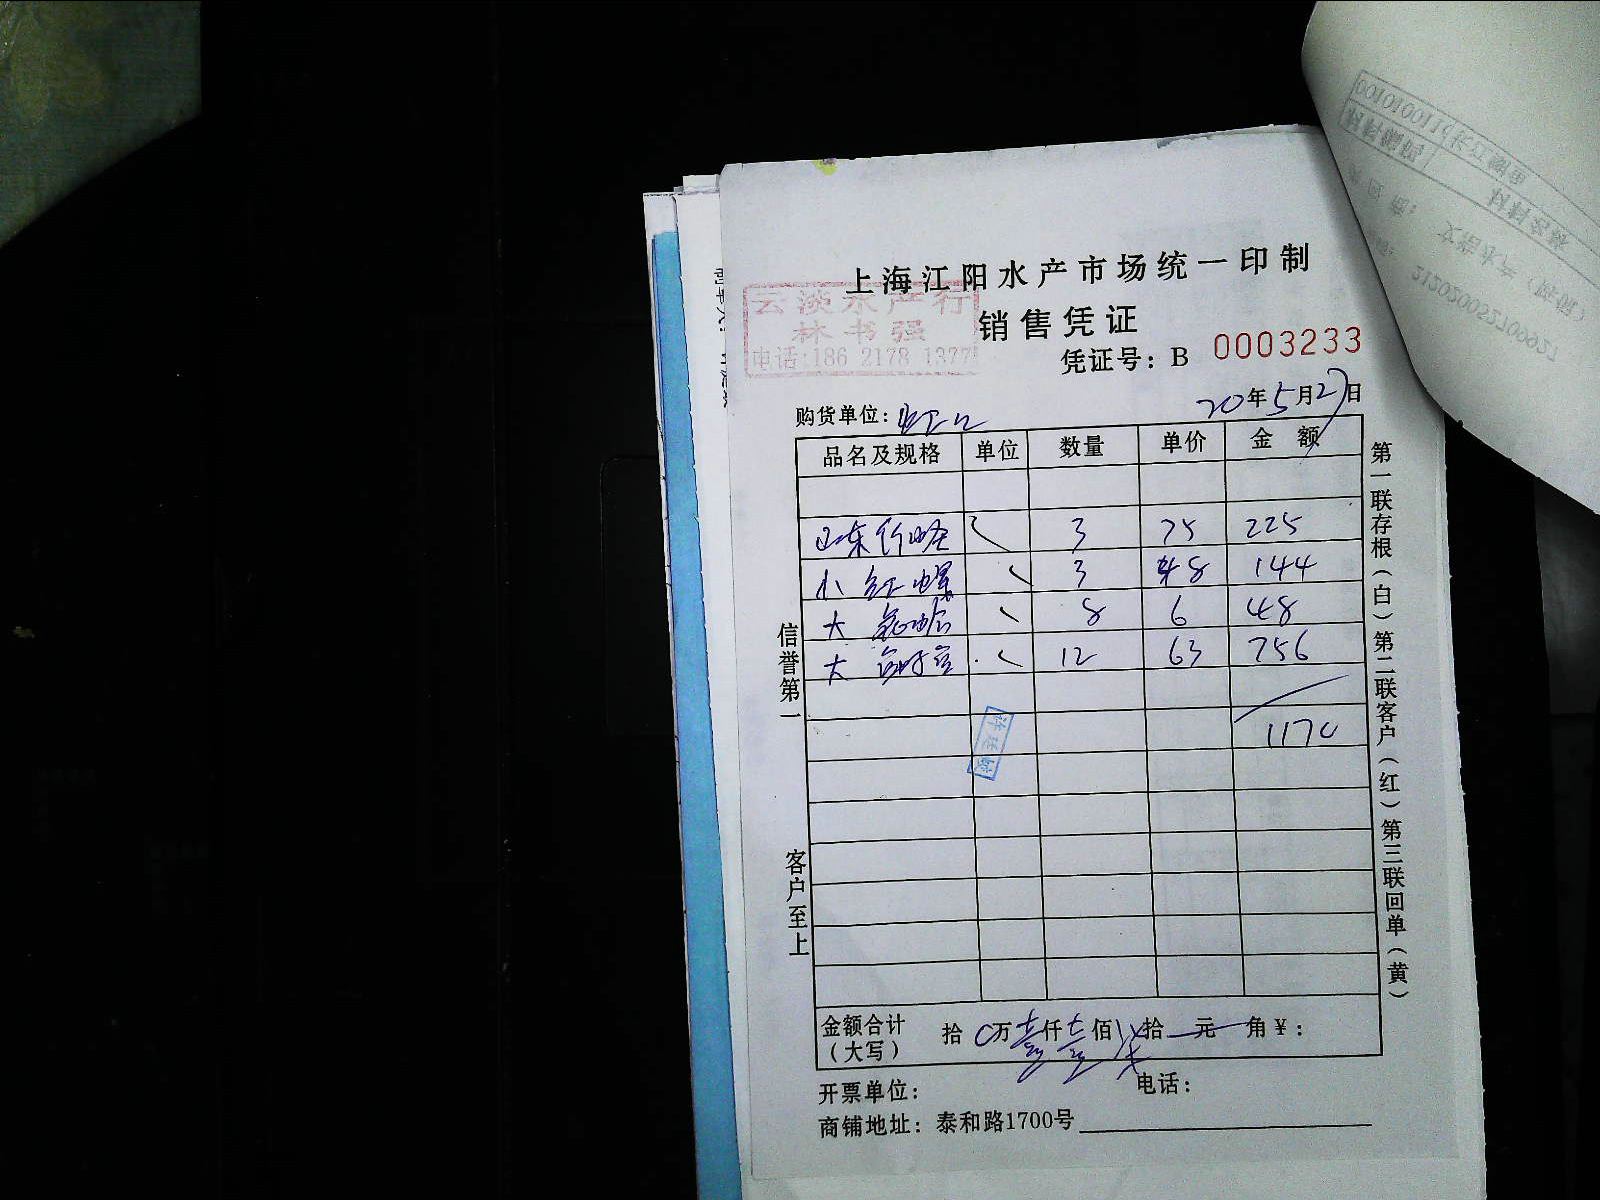 上海江阳水产市场统一印制
云淡水产行
林书强
电话:186 2178 1377
销售凭证
凭证号：B 0003233
购货单位：虹口
20年5月27日
品名及规格 单位 数量 单价 金额
山东竹蛏 3 75 225
小红螺 3 48 144
大 8 6 48
大 12 63 756
1170
金额合计（大写） 拾 0万壹仟壹佰柒拾 元 角￥：
开票单位： 电话：
商铺地址：泰和路1700号
信誉第一
客户至上
第一联存根（白）第二联客户（红）第三联回单（黄）